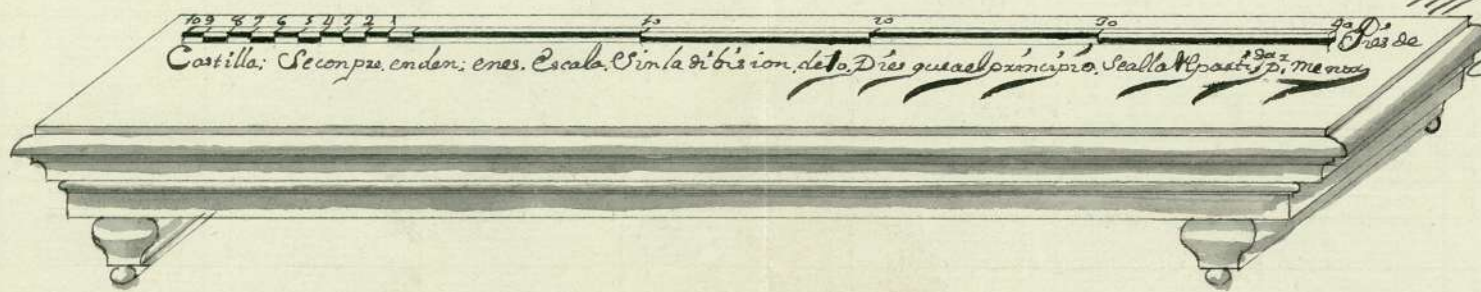 10 9 8 7 6 5 4 3 2 1 10 20 30 40 Pies de
Castilla; Seconpre.enden; enes. Escala. Sin la dibision de 10. Pies que a el principio. Sealla Rpartidaz p.r menor